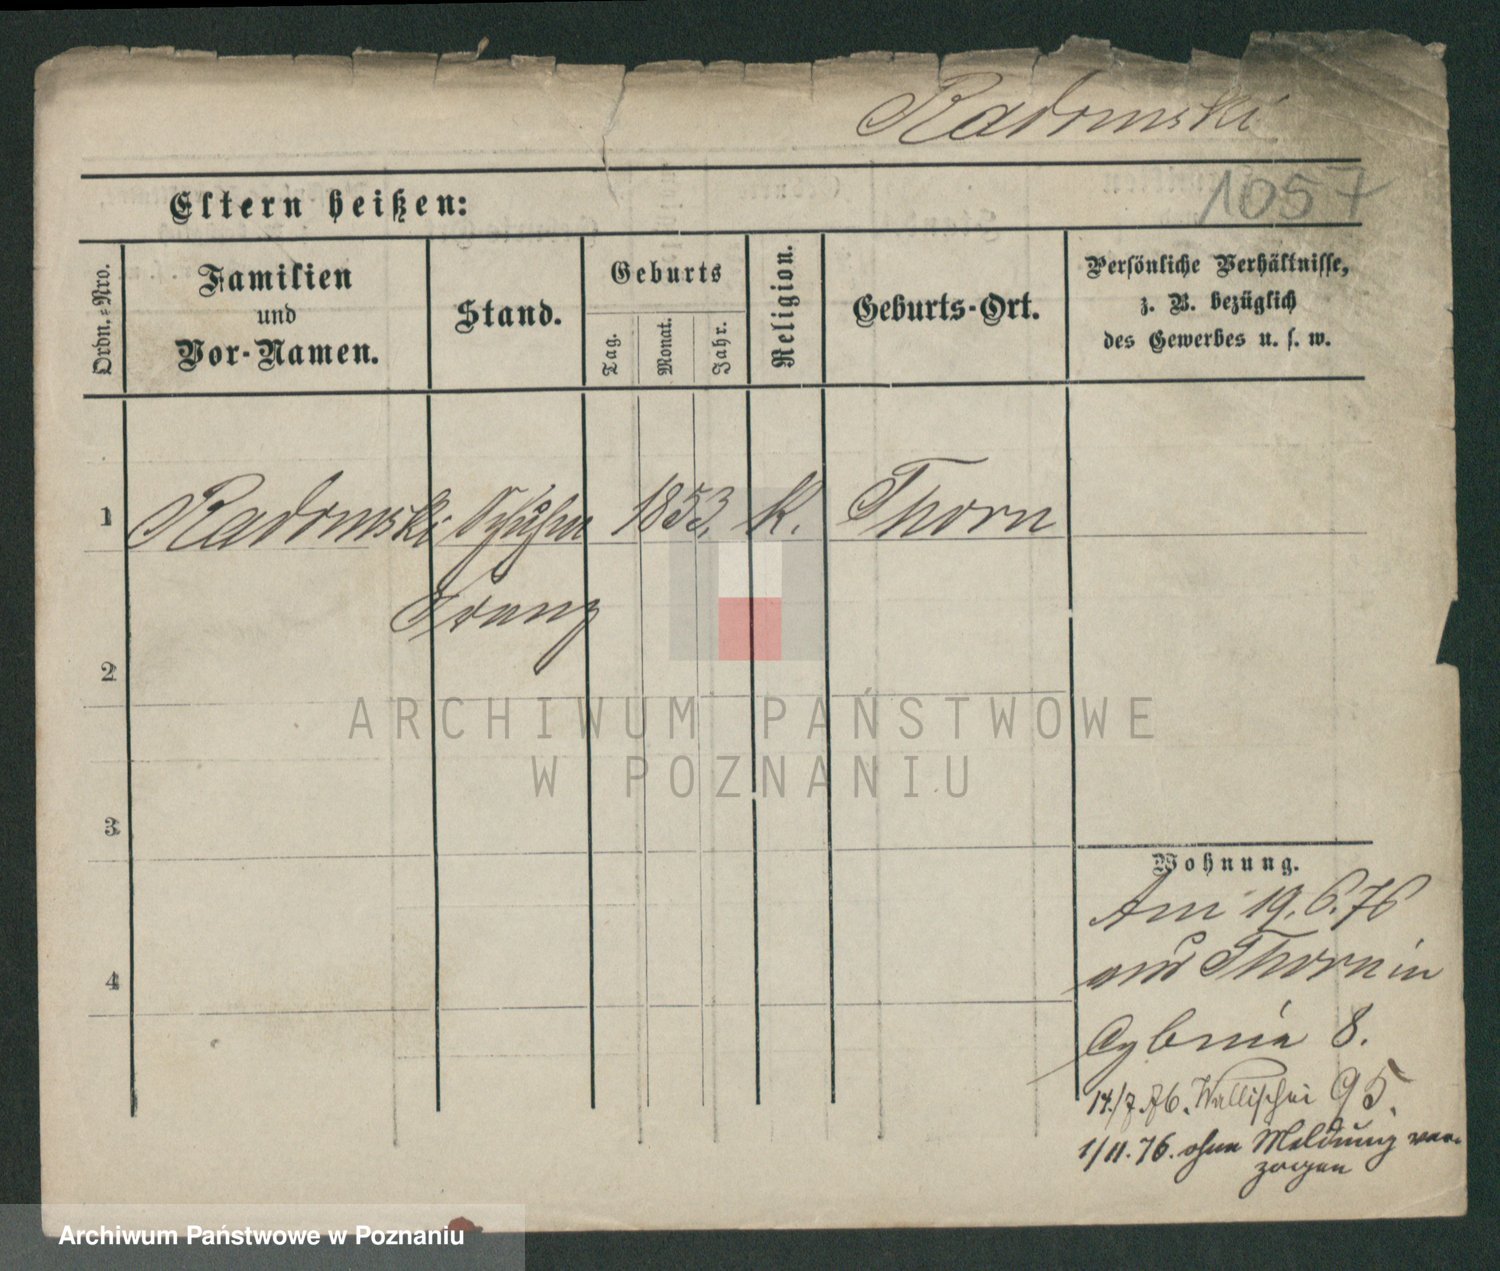 Radomski
1057
Eltern heißen:
Ordn.-Nro.
Familien
und
Vor-Namen.
Stand.
Geburts
Tag.
Monat.
Jahr.
Religion.
Geburts-Ort.
Persönliche Verhältnisse,
z. B. bezüglich
des Gewerbes u. s. w.
1 Radomski 1853. K. Thorn
Franz
2
3
4
ARCHIWUM PAŃSTWOWE
W POZNANIU
Wohnung.
Am 19.6.76
aus Thorn in
Cybina 8.
14./7.76. Wallischei 95.
1/11.76. ohne Meldung ver-
zogen
Archiwum Państwowe w Poznaniu